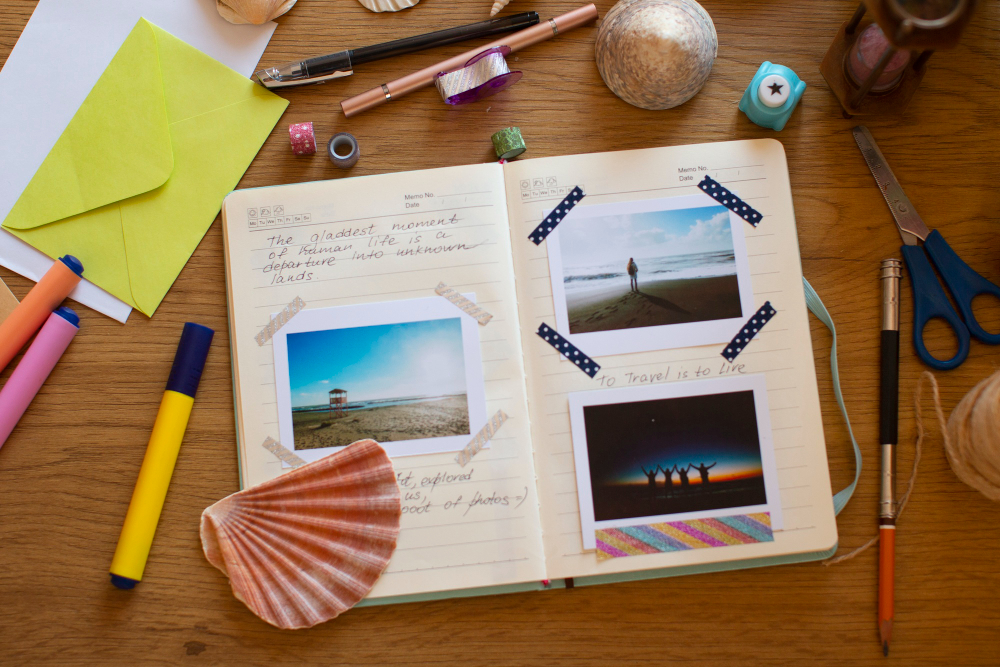 Memo No.
Date
Mo Tu We Th Fr Sa Su
The gladdest moment
of human life is a
departure into unknown
lands.
explored
us,
of photos =)
Memo No.
Date
Mo Tu We Th Fr Sa Su
To Travel is to Live